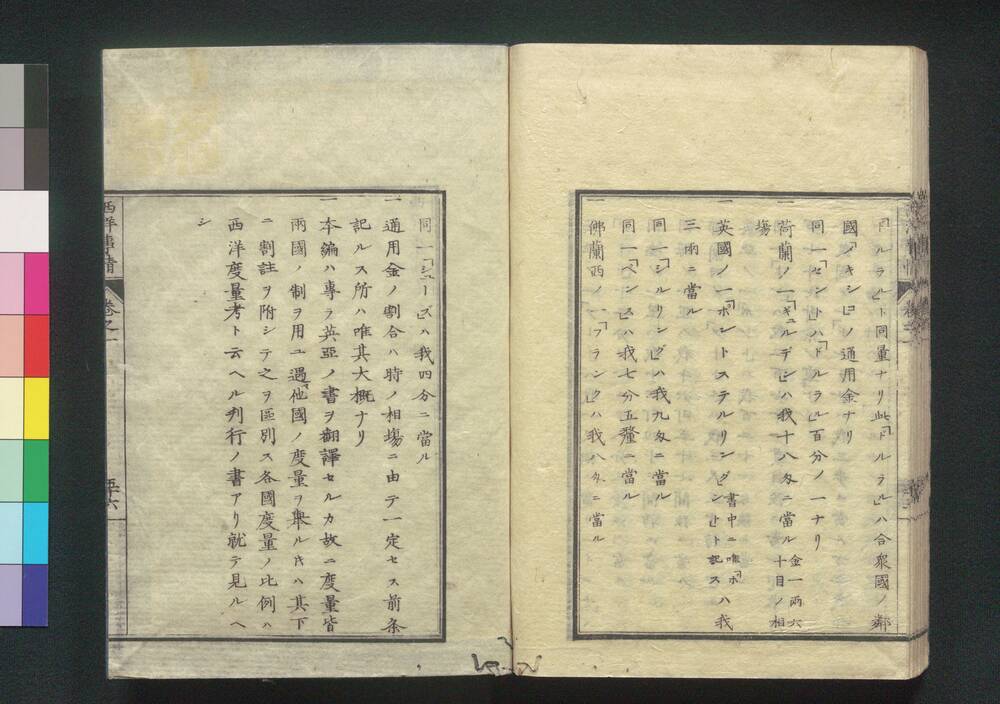 「ドルラル」ト同量ナリ此「ドルラル」ハ合衆國ノ鄰
國「メキシコ」ノ通用金ナリ
同一「セント」ハ「ドルラル」百分ノ一ナリ
一荷蘭ノ一「ギュルデン」ハ我十八匁ニ當ル金一兩六十目ノ相
塲
一英國ノ一「ポント、ステルリング」書中ニ唯「ポンド」ト記スハ我
三兩ニ當ル
同一「シルリング」ハ我九匁ニ當ル
同一「ペンス」ハ我七分五釐ニ當ル
一佛蘭西ノ一「フランク」ハ我八匁ニ當ル
同一「シューズ」ハ我四分ニ當ル
一通用金ノ割合ハ時ノ相塲ニ由テ一定セス前条
記ルス所ハ唯其大概ナリ
一本編ハ專ラ英亞ノ書ヲ翻譯セルカ故ニ度量皆
兩國ノ制ヲ用ユ遇他國ノ度量ヲ擧ルキハ其下
ニ割註ヲ附シテ之ヲ區別ス各國度量ノ比例ハ
西洋度量考ト云ヘル刋行ノ書アリ就テ見ルヘ
シ
西洋事情
卷之一
五六